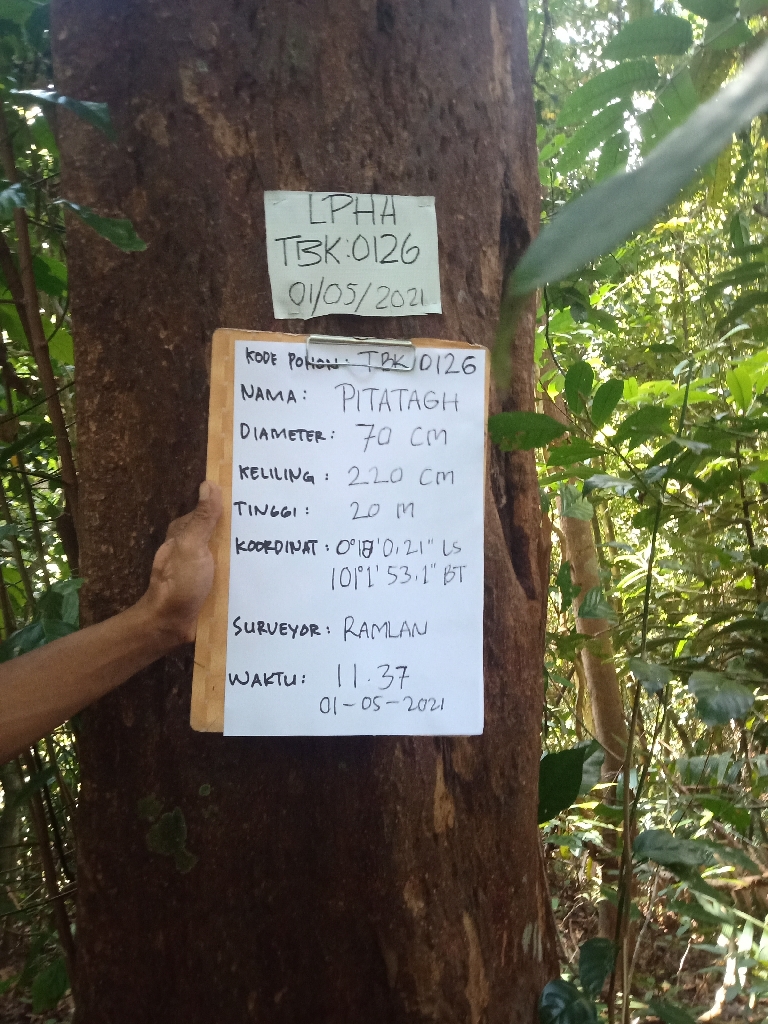 LPHA
TBK:0126
01/05/2021
KODE POHON: TBK:0126
NAMA: PITATAGH
DIAMETER: 70 CM
KELILING: 220 CM
TINGGI: 20 M
KOORDINAT: 0°18'0.21" LS
101°1'53.1" BT
SURVEYOR: RAMLAN
WAKTU: 11.37
01-05-2021